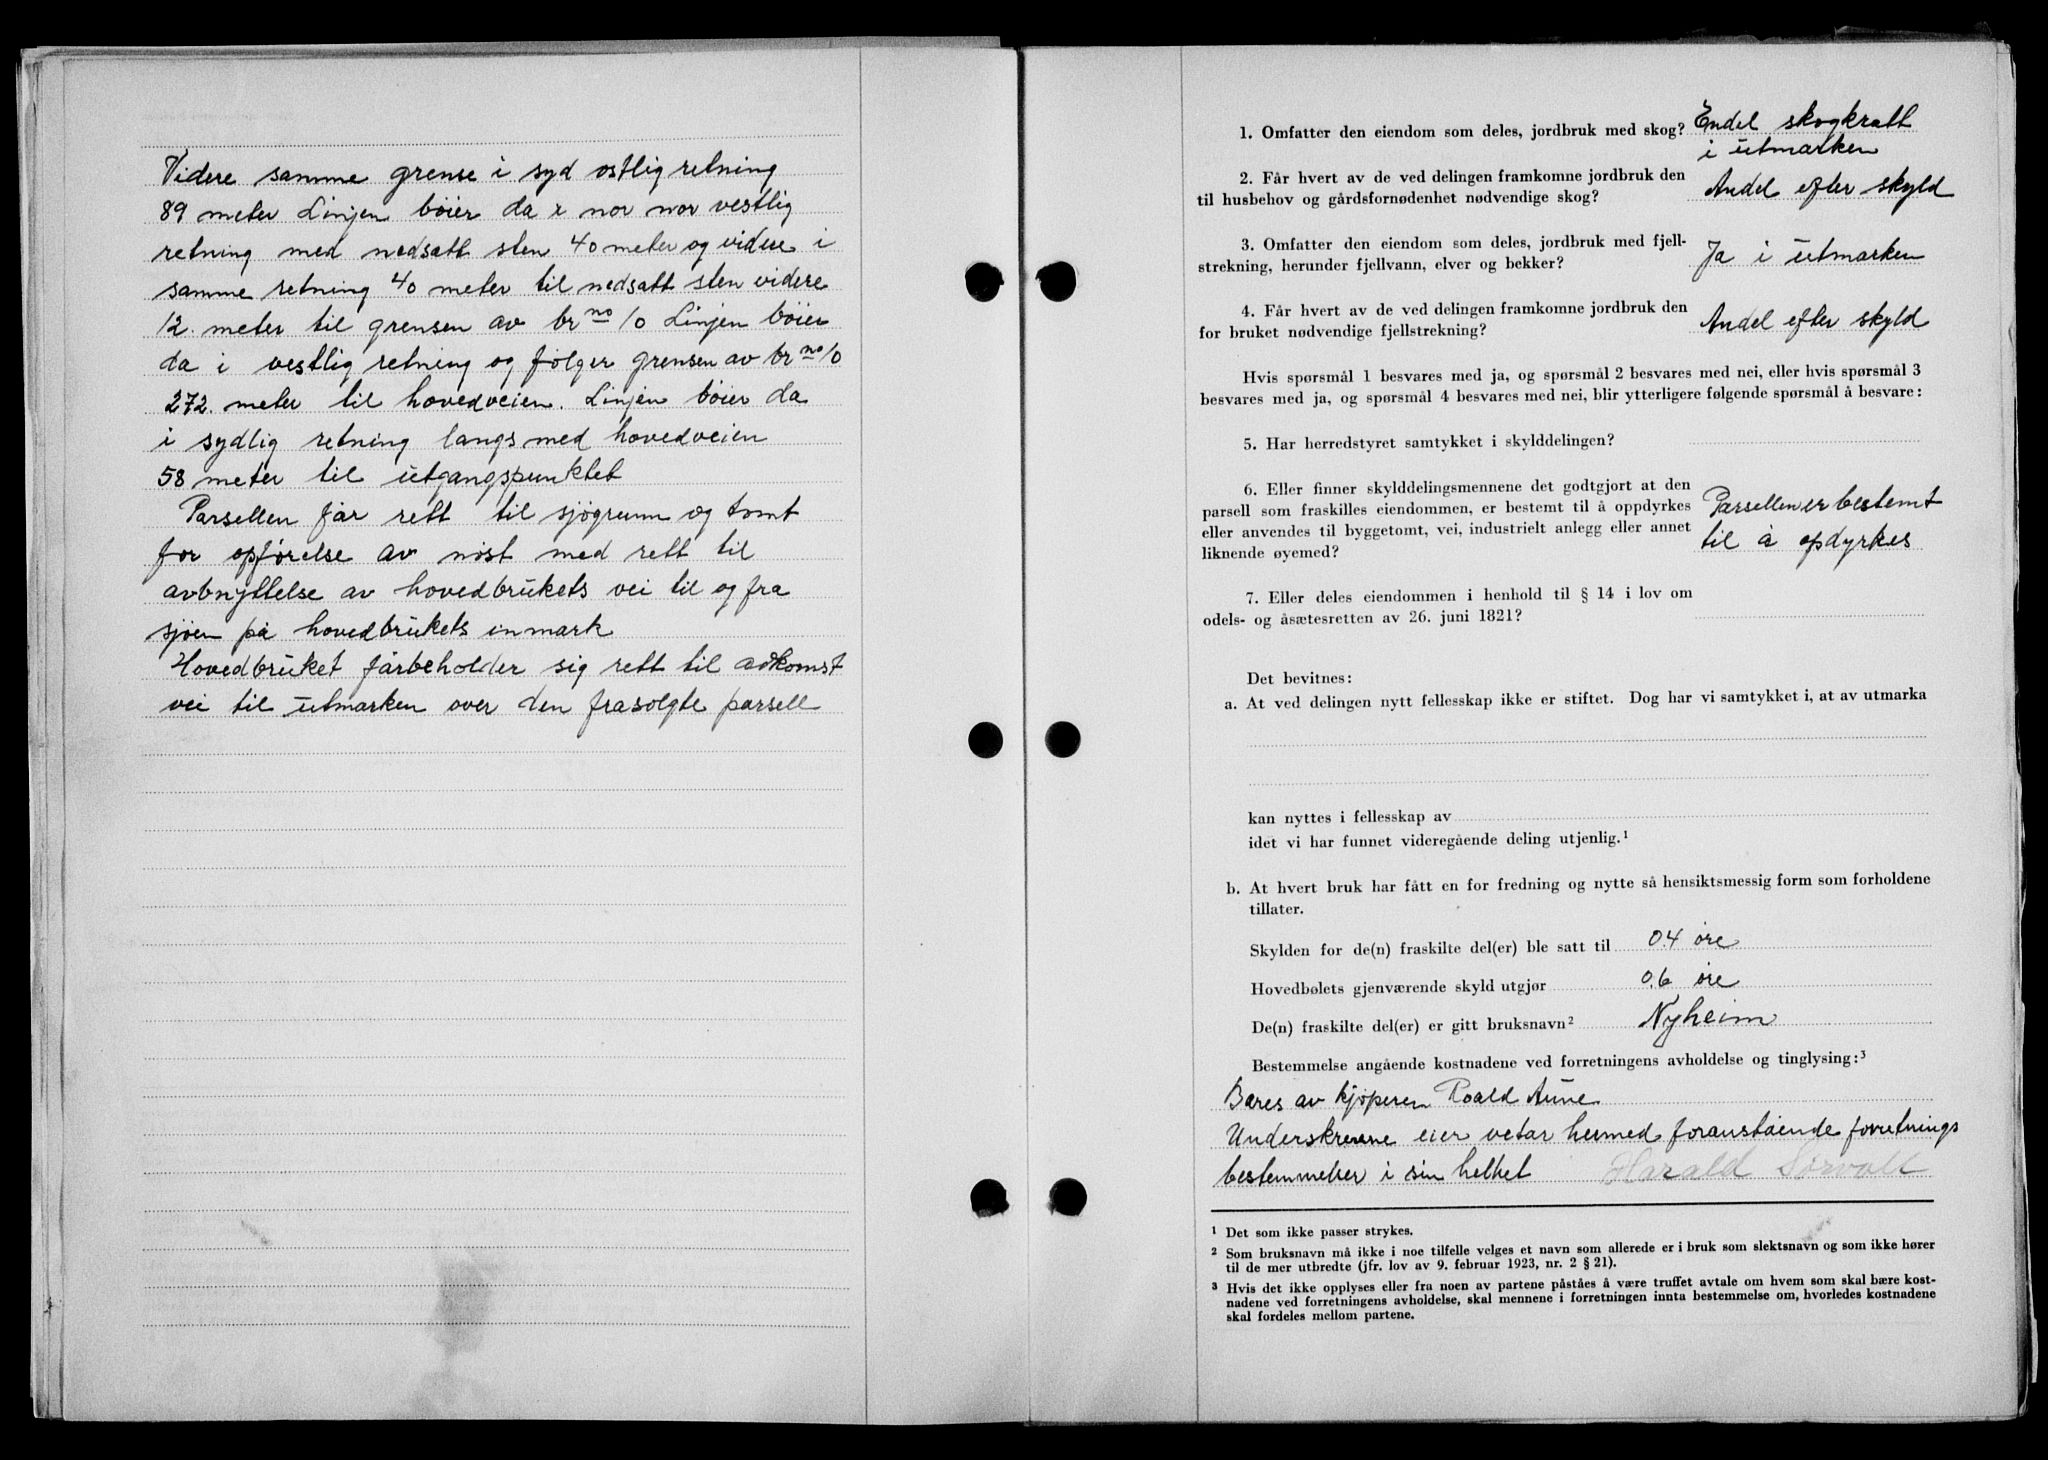 Videre samme grense i syd ostlig retning
89 meter Linjen bøier da i nor nor vestlig
retning med nedsatt sten 40 meter og videre i
samme retning 40 meter til nedsatt sten videre
12. meter til grensen av br no 10 Linjen bøier
da i vestlig retning og følger grensen av br no 10
272. meter til hovedveien. Linjen bøier da
i sydlig retning langs med hovedveien
58 meter til utgangspunktet
Parsellen får rett til sjøgrunn og tomt
for opførelse av nøst med rett til
avbnyttelse av hovedbrukets vei til og fra
sjøen på hovedbrukets inmark
Hovedbruket fårbeholder sig rett til adkomst
vei til utmarken over den frasolgte parsell
1. Omfatter den eiendom som deles, jordbruk med skog? Endel skogkratt
i utmarken
2. Får hvert av de ved delingen framkomne jordbruk den
til husbehov og gårdsfornødenhet nødvendige skog? Andel efter skyld
3. Omfatter den eiendom som deles, jordbruk med fjell-
strekning, herunder fjellvann, elver og bekker? Ja i utmarken
4. Får hvert av de ved delingen framkomne jordbruk den
for bruket nødvendige fjellstrekning? Andel efter skyld
Hvis spørsmål 1 besvares med ja, og spørsmål 2 besvares med nei, eller hvis spørsmål 3
besvares med ja, og spørsmål 4 besvares med nei, blir ytterligere følgende spørsmål å besvare:
5. Har herredstyret samtykket i skylddelingen?
6. Eller finner skylddelingsmennene det godtgjort at den
parsell som fraskilles eiendommen, er bestemt til å oppdyrkes Parsellen er bestemt
eller anvendes til byggetomt, vei, industrielt anlegg eller annet
liknende øyemed? til å opdyrkes
7. Eller deles eiendommen i henhold til § 14 i lov om
odels- og åsætesretten av 26. juni 1821?
Det bevitnes:
a. At ved delingen nytt fellesskap ikke er stiftet. Dog har vi samtykket i, at av utmarka
kan nyttes i fellesskap av
idet vi har funnet videregående deling utjenlig.¹
b. At hvert bruk har fått en for fredning og nytte så hensiktsmessig form som forholdene
tillater.
Skylden for de(n) fraskilte del(er) ble satt til 04 øre
Hovedbølets gjenværende skyld utgjør 0.6 øre
De(n) fraskilte del(er) er gitt bruksnavn² Nyheim
Bestemmelse angående kostnadene ved forretningens avholdelse og tinglysing:³
Bæres av kjøperen Roald Aune
Underskrevne eier vetar hermed foranstående forretnings
bestemmelser i sin helhet Harald Sørvoll
¹ Det som ikke passer strykes.
² Som bruksnavn må ikke i noe tilfelle velges et navn som allerede er i bruk som slektsnavn og som ikke hører
til de mer utbredte (jfr. lov av 9. februar 1923, nr. 2 § 21).
³ Hvis det ikke opplyses eller fra noen av partene påståes å være truffet avtale om hvem som skal bære kost-
nadene ved forretningens avholdelse, skal mennene i forretningen innta bestemmelse om, hvorledes kostnadene
skal fordeles mellom partene.